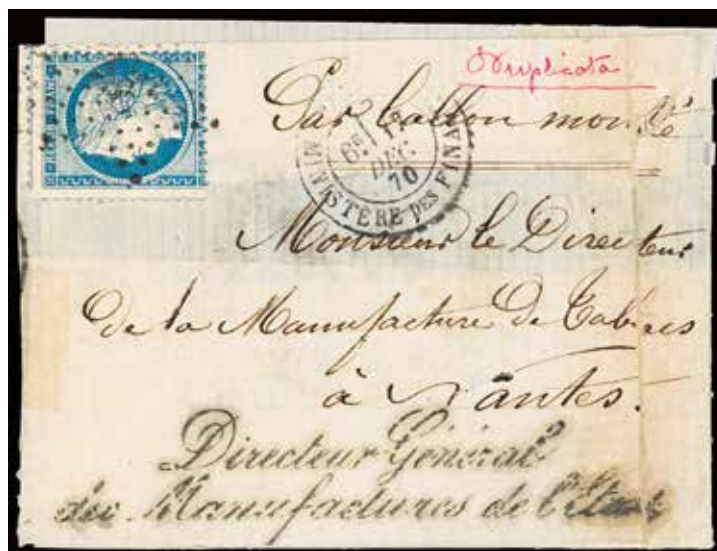 Duplicata
Par ballon monté
6E 17
DEC
70
MINISTÈRE DES FINA
Monsieur le Directeur
de la Manufacture de Tabacs
à Nantes.
Directeur Général
des Manufactures de l'État